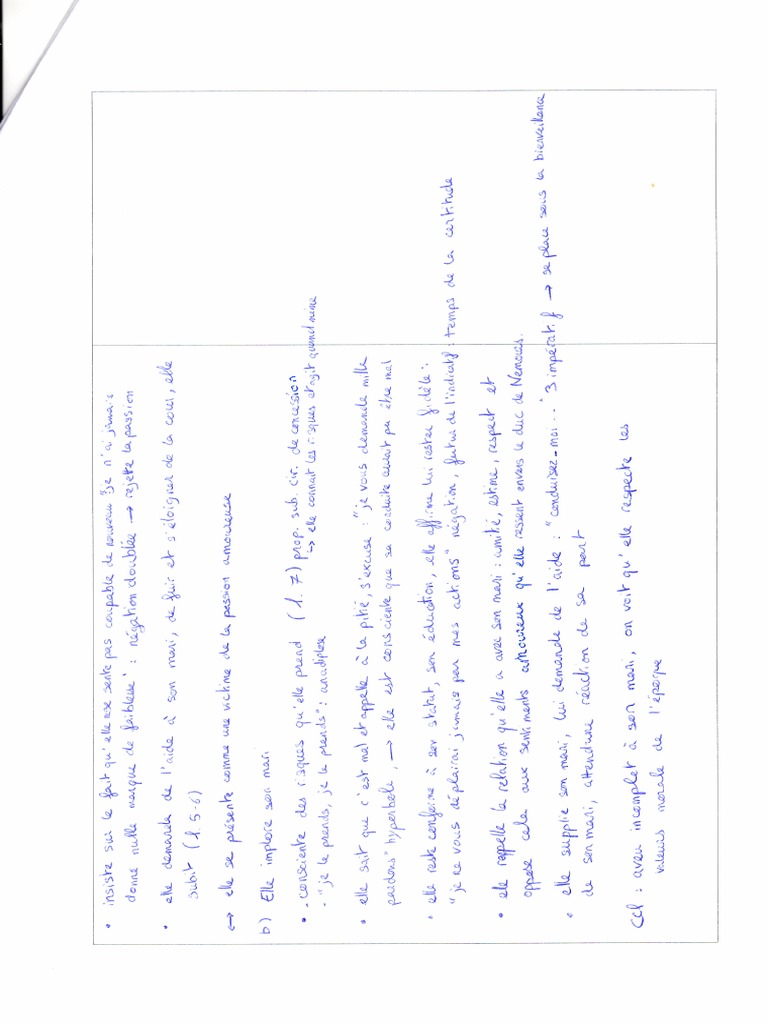 • insiste sur le fait qu'elle ne se sente pas coupable de nouveau "je n'ai jamais
donné nulle marque de faiblesse" : négation doublée → rejette la passion
• elle demande de l'aide à son mari, de fuir et s'éloigner de la cour, elle
subit (l. 5-6)
↔ elle se présente comme une victime de la passion amoureuse
b) Elle implore son mari
• - consciente des risques qu'elle prend (l. 7) prop. sub. cir. de concession
→ elle connait les risques et agit quand même
- "je le prends, je le prends" : anadiplose
• elle sait que c'est mal et appelle à la pitié, s'excuse : "je vous demande mille
pardons" hyperbole, → elle est consciente que sa conduite aurait pu être mal
• elle reste conforme à son statut, son éducation, elle affirme lui rester fidèle :
"je ne vous déplairai jamais par mes actions" négation, futur de l'indicatif : temps de la certitude
• elle rappelle la relation qu'elle a avec son mari : amitié, estime, respect et
oppose cela aux sentiments amoureux qu'elle ressent envers le duc de Nemours.
• elle supplie son mari, lui demande de l'aide : "conduisez-moi..." 3 impératif → se place sous la bienveillance
de son mari, attendune réaction de sa part
Ccl : aveu incomplet à son mari, on voit qu'elle respecte les
valeurs morale de l'époque